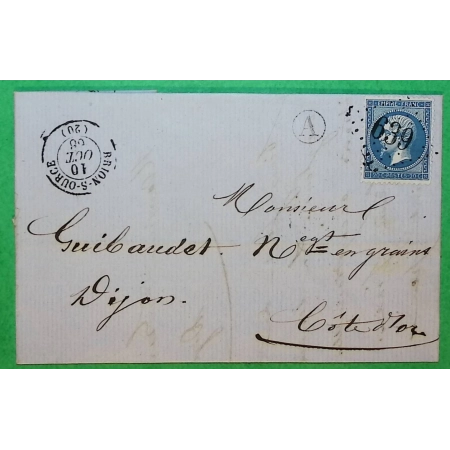 BRION-S-OURCE
10
OCT
68
(20)
A
EMPIRE FRANC
639
Monsieur
Guibaudet. Negt en grains
Dijon.
Côte d'or